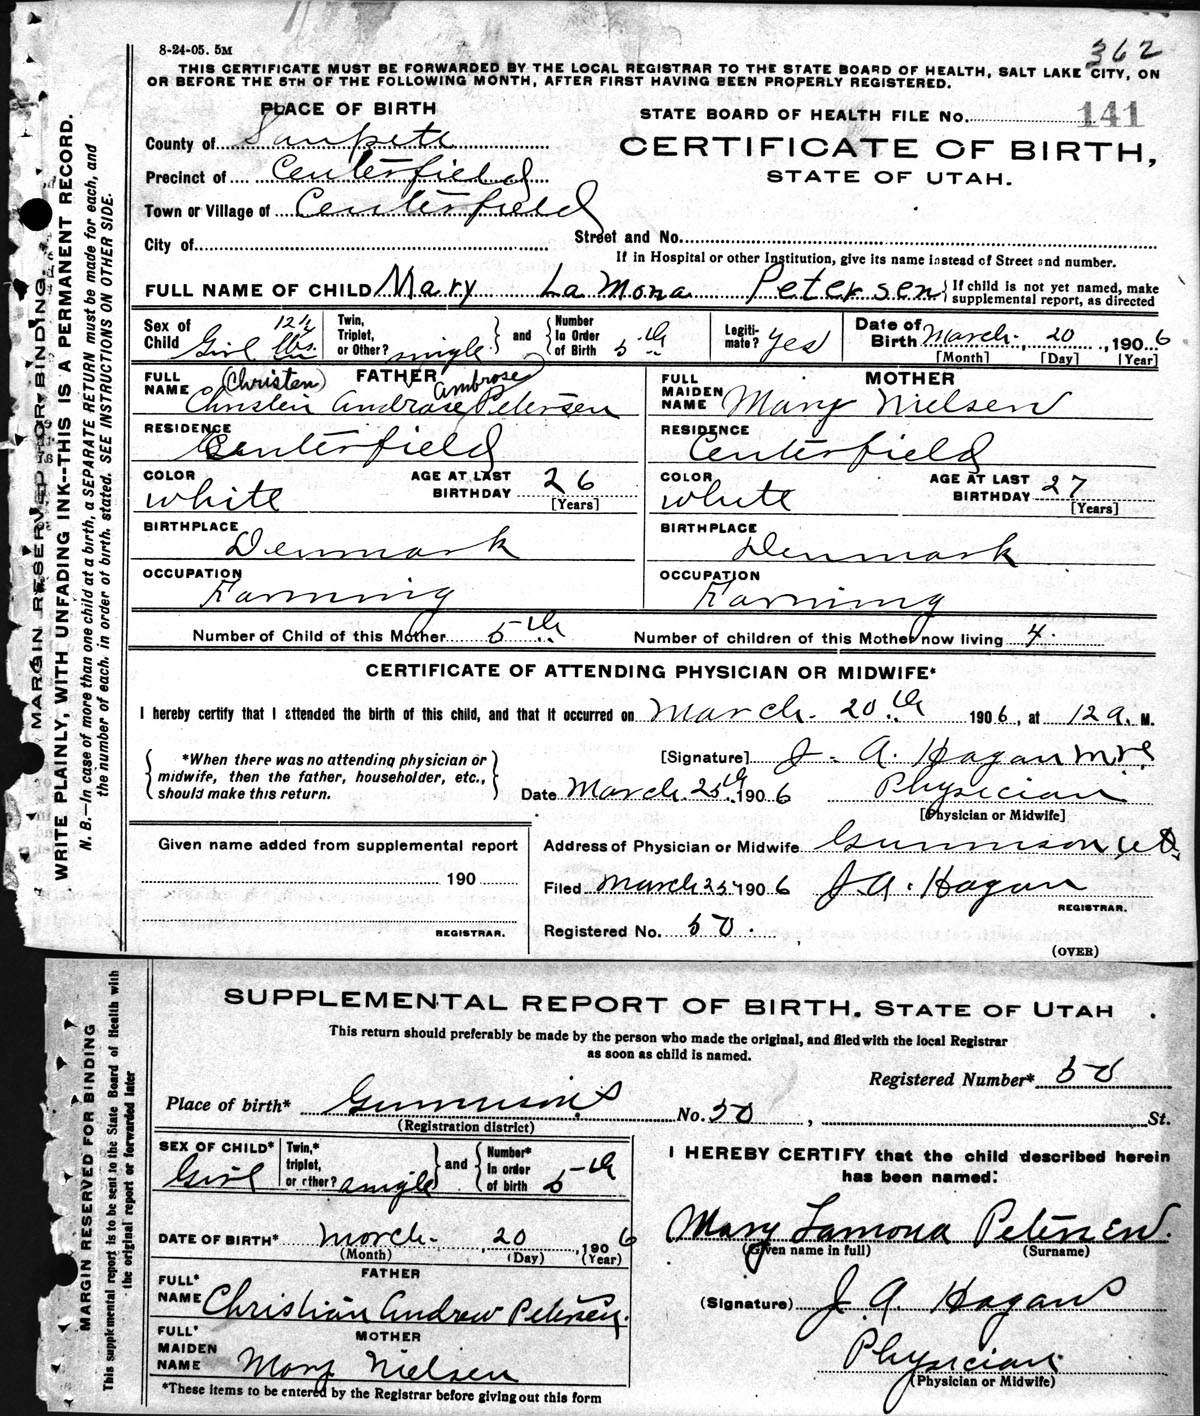 8-24-05. 5M
362
THIS CERTIFICATE MUST BE FORWARDED BY THE LOCAL REGISTRAR TO THE STATE BOARD OF HEALTH, SALT LAKE CITY, ON
OR BEFORE THE 5TH OF THE FOLLOWING MONTH, AFTER FIRST HAVING BEEN PROPERLY REGISTERED.
PLACE OF BIRTH
STATE BOARD OF HEALTH FILE No. 141
County of Sanpete
CERTIFICATE OF BIRTH,
Precinct of Centerfield
STATE OF UTAH.
Town or Village of Centerfield
City of
Street and No.
If in Hospital or other Institution, give its name instead of Street and number.
FULL NAME OF CHILD Mary La Mona Petersen } If child is not yet named, make supplemental report, as directed
Sex of Child Girl 12½ lbs. Twin, Triplet, or Other? single } and { Number In Order of Birth 5th Legiti- mate? Yes Date of Birth March 20, 1906
[Month] [Day] [Year]
FATHER
MOTHER
FULL NAME (Christen) (Ambrose)
Christein Andrase Petersen
FULL MAIDEN NAME Mary Nielsen
RESIDENCE Centerfield
RESIDENCE Centerfield
COLOR white AGE AT LAST BIRTHDAY 26 [Years]
COLOR white AGE AT LAST BIRTHDAY 27 [Years]
BIRTHPLACE Denmark
BIRTHPLACE Denmark
OCCUPATION Farming
OCCUPATION Farming
Number of Child of this Mother 5th Number of children of this Mother now living 4.
CERTIFICATE OF ATTENDING PHYSICIAN OR MIDWIFE*
I hereby certify that I attended the birth of this child, and that it occurred on March 20th 1906, at 12 a. M.
{ *When there was no attending physician or
midwife, then the father, householder, etc.,
should make this return. }
[Signature] J. A. Hagan
Date March 25th 1906 Physician
[Physician or Midwife]
Given name added from supplemental report
190
REGISTRAR.
Address of Physician or Midwife Gunnison, Ut
Filed March 25 1906 J. A. Hagan
REGISTRAR.
Registered No. 50.
(OVER)
MARGIN RESERVED FOR BINDING.
WRITE PLAINLY, WITH UNFADING INK--THIS IS A PERMANENT RECORD.
N. B.—In case of more than one child at a birth, a SEPARATE RETURN must be made for each, and
the number of each, in order of birth, stated. SEE INSTRUCTIONS ON OTHER SIDE.
SUPPLEMENTAL REPORT OF BIRTH, STATE OF UTAH
This return should preferably be made by the person who made the original, and filed with the local Registrar
as soon as child is named.
Registered Number* 50
Place of birth* Gunnison No. 50, St.
(Registration district)
SEX OF CHILD* Girl Twin,* triplet, or other? single } and { Number* In order of birth 5th
DATE OF BIRTH* March 20, 1906
(Month) (Day) (Year)
FATHER
FULL* NAME Christian Andrew Petersen.
MOTHER
FULL* MAIDEN NAME Mary Nielsen
*These items to be entered by the Registrar before giving out this form
I HEREBY CERTIFY that the child described herein
has been named:
Mary Lamona Petersen.
(Given name in full) (Surname)
(Signature) J. A. Hagan
Physician
(Physician or Midwife)
MARGIN RESERVED FOR BINDING
This supplemental report is to be sent to the State Board of Health with
the original report or forwarded later